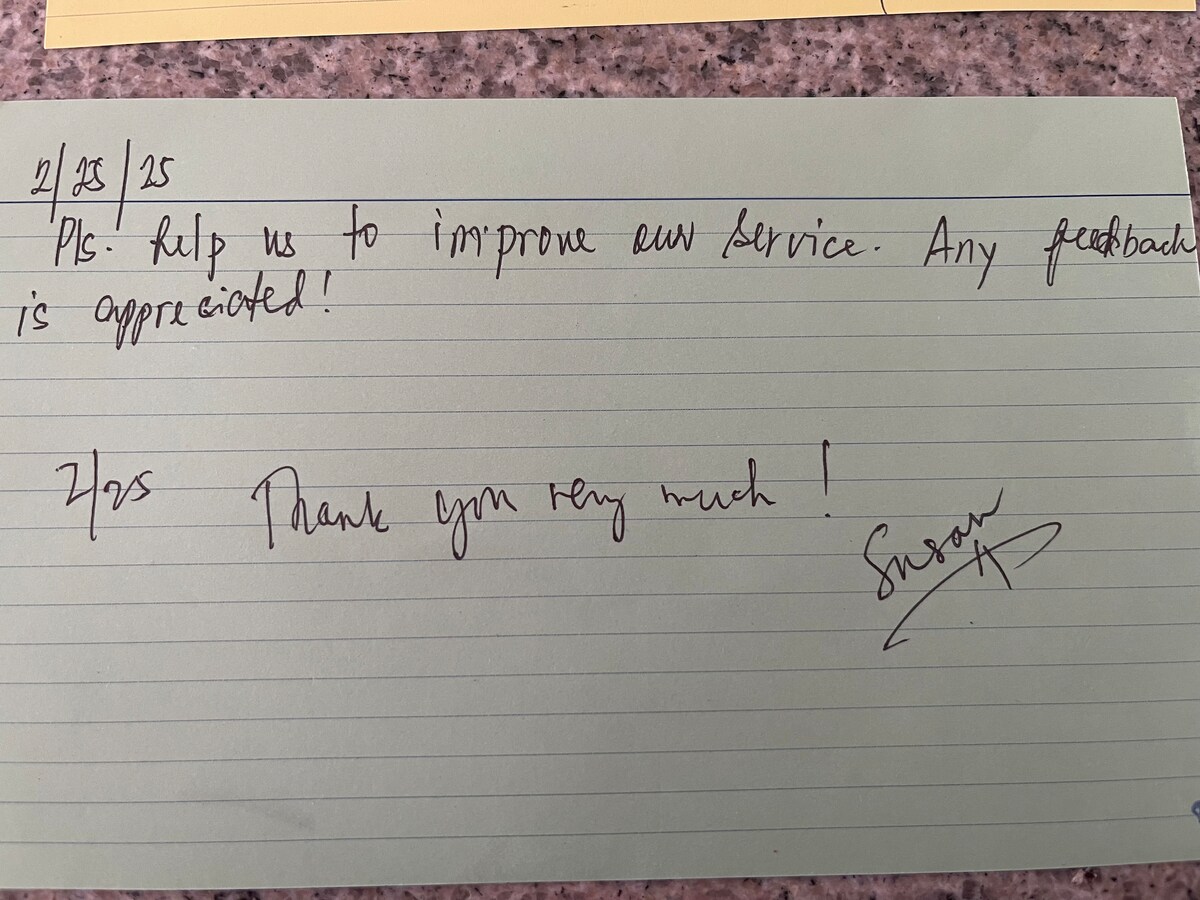 2/25/25
Pls. help us to improve our service. Any feedback
is appreciated!
2/25 Thank you very much!
Susan